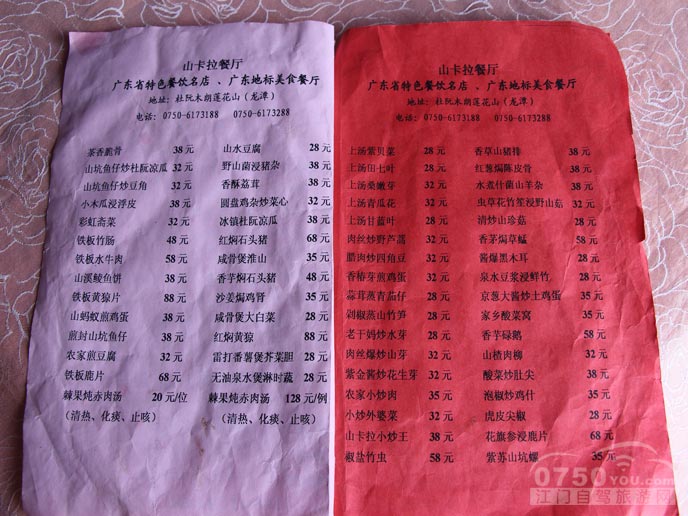 山卡拉餐厅
广东省特色餐饮名店 、广东地标美食餐厅
地址: 杜阮木朗莲花山（龙潭）
电话: 0750-6173188 0750-6173288
茶香脆骨 38 元 山水豆腐 28 元
山坑鱼仔炒杜阮凉瓜 32 元 野山菌浸猪杂 38 元
山坑鱼仔炒豆角 32 元 香酥荔茸 38 元
小木瓜浸浮皮 32 元 圆盘鸡杂炒菜心 32 元
彩虹斋菜 32 元 冰镇杜阮凉瓜 38 元
铁板竹肠 48 元 红焖石头猪 68 元
铁板水牛肉 58 元 咸骨煲淮山 35 元
山溪鲮鱼饼 38 元 香芋焖石头猪 48 元
铁板黄狼片 88 元 沙姜焗鸡肾 35 元
山蚂蚁煎鸡蛋 38 元 咸骨煲大白菜 28 元
煎封山坑鱼仔 38 元 红焖黄狼 88 元
农家煎豆腐 32 元 雷打番薯煲芥菜胆 28 元
铁板鹿片 68 元 无油泉水煲淋时蔬 28 元
棘果炖赤肉汤 20 元/位 棘果炖赤肉汤 128 元/例
（清热、化痰、止咳） （清热、化痰、止咳）
山卡拉餐厅
广东省特色餐饮名店 、广东地标美食餐厅
地址: 杜阮木朗莲花山（龙潭）
电话: 0750-6173188 0750-6173288
上汤紫贝菜 28 元 香草山猪排 38 元
上汤田七叶 28 元 红葱焗陈皮骨 38 元
上汤桑嫩芽 32 元 水煮什菌山羊杂 38 元
上汤青瓜花 32 元 虫草花竹笙浸野山菇 32 元
上汤甘蓝叶 28 元 清炒山珍菇 28 元
肉丝炒野芦蒿 32 元 香茅焗草蜢 58 元
腊肉炒四角豆 32 元 酱爆黑木耳 28 元
香椿芽煎鸡蛋 32 元 泉水豆浆浸鲜竹 28 元
蒜茸蒸青茄仔 28 元 京葱大酱炒土鸡蛋 35 元
剁椒蒸山竹笋 28 元 家乡酸菜窝 35 元
老干妈炒水芽 28 元 香芋碌鹅 58 元
肉丝爆炒山芽 32 元 山楂肉柳 32 元
紫金酱炒花生芽 32 元 酸菜炒肚尖 38 元
农家小炒肉 35 元 泡椒炒鸡什 35 元
小炒外婆菜 32 元 虎皮尖椒 28 元
山卡拉小炒王 38 元 花旗参浸鹿片 68 元
椒盐竹虫 58 元 紫苏山坑螺 35 元
0750YOU.com
江门自驾旅游网